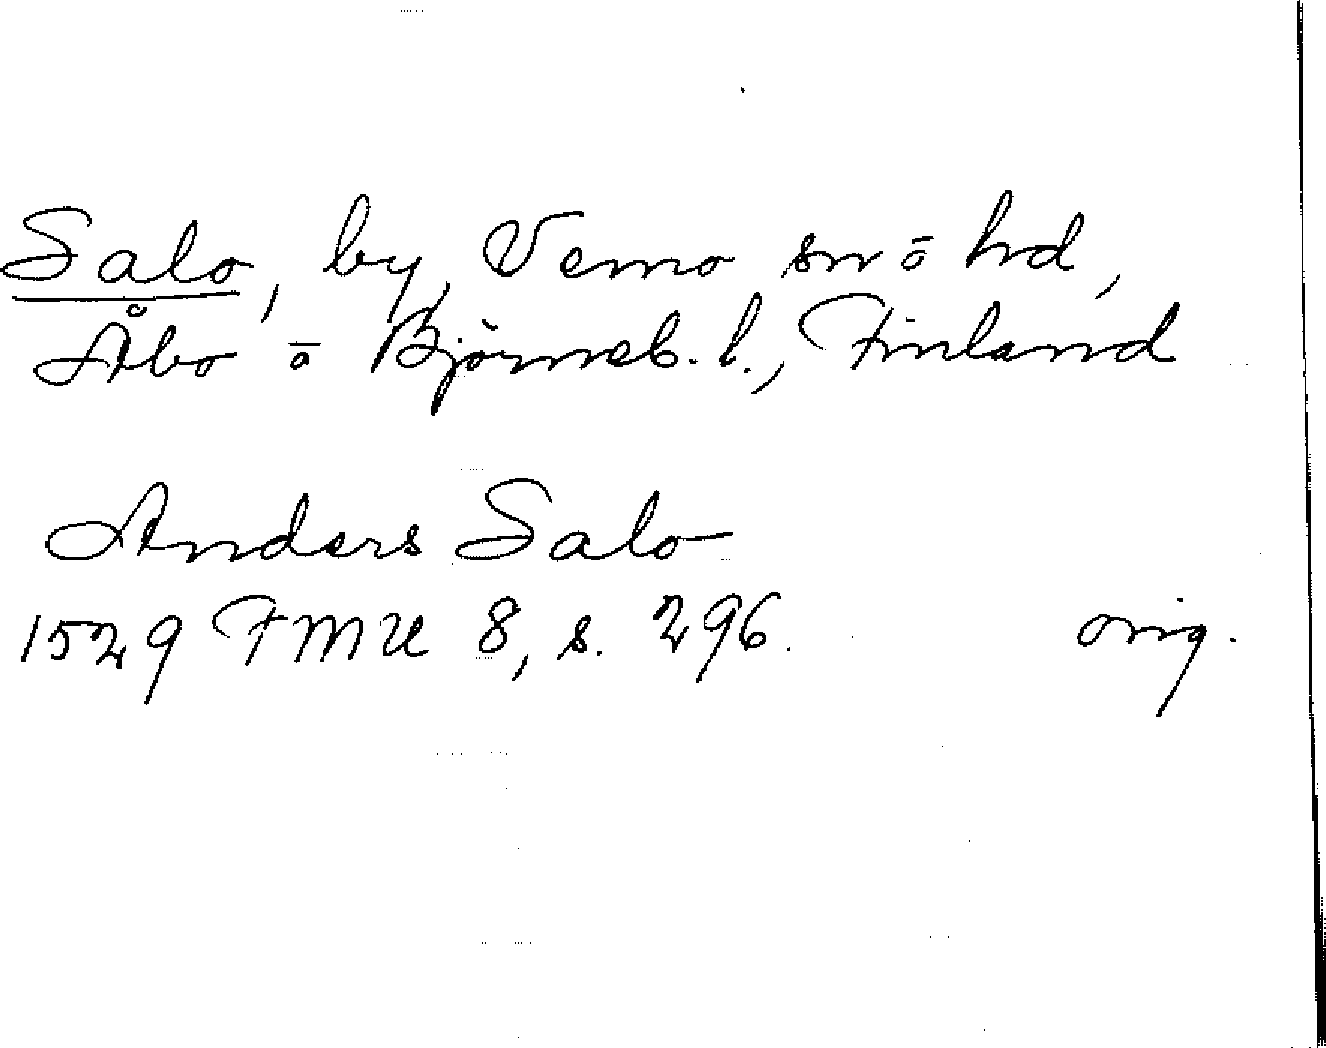 Salo, by, Vemo sn ō hd,
Åbo ō Björneb. l., Finland
Anders Salo
1529 FMU 8, s. 296. orig.